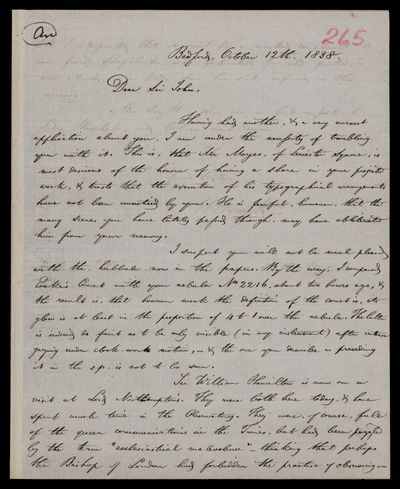 An
265
Bedford, October 12th. 1838.
Dear Sir John,
Having had another, & a very earnest
application about you, I am under the necessity of troubling
you with it. This is, that Mr Moyes, of Leicester Square, is
most desirous of the honour of having a share in your projected
work, & trusts that the execution of his typographical arrangements
have not been unnoticed by you. He is fearful, however, that the
many scenes you have lately passed through, may have obliterated
him from your memory.
I suspect you will not be well pleased
with the hubbub now in the papers. By the way, I compared
Encke's Comet with your nebula No 2216, about two hours ago, &
the result is, that however weak the definition of the comet is, its
glow is at least in the proportion of 4 to 1 over the nebula. The latter
is indeed so faint as to be only visible (in my instrument) after intense
gazing under clock work motion, — & the one you describe as preceding
it in the s.p. is not to be seen.
Sir William Hamilton is now on a
visit at Lord Northampton's. They were both here today, & have
spent much time in the Observatory. They were, of course, full
of the queer communications in the Times, but had been puzzled
by the term "ecclesiastical — thinking that perhaps
the Bishop of London had forbidden the practice of observing —